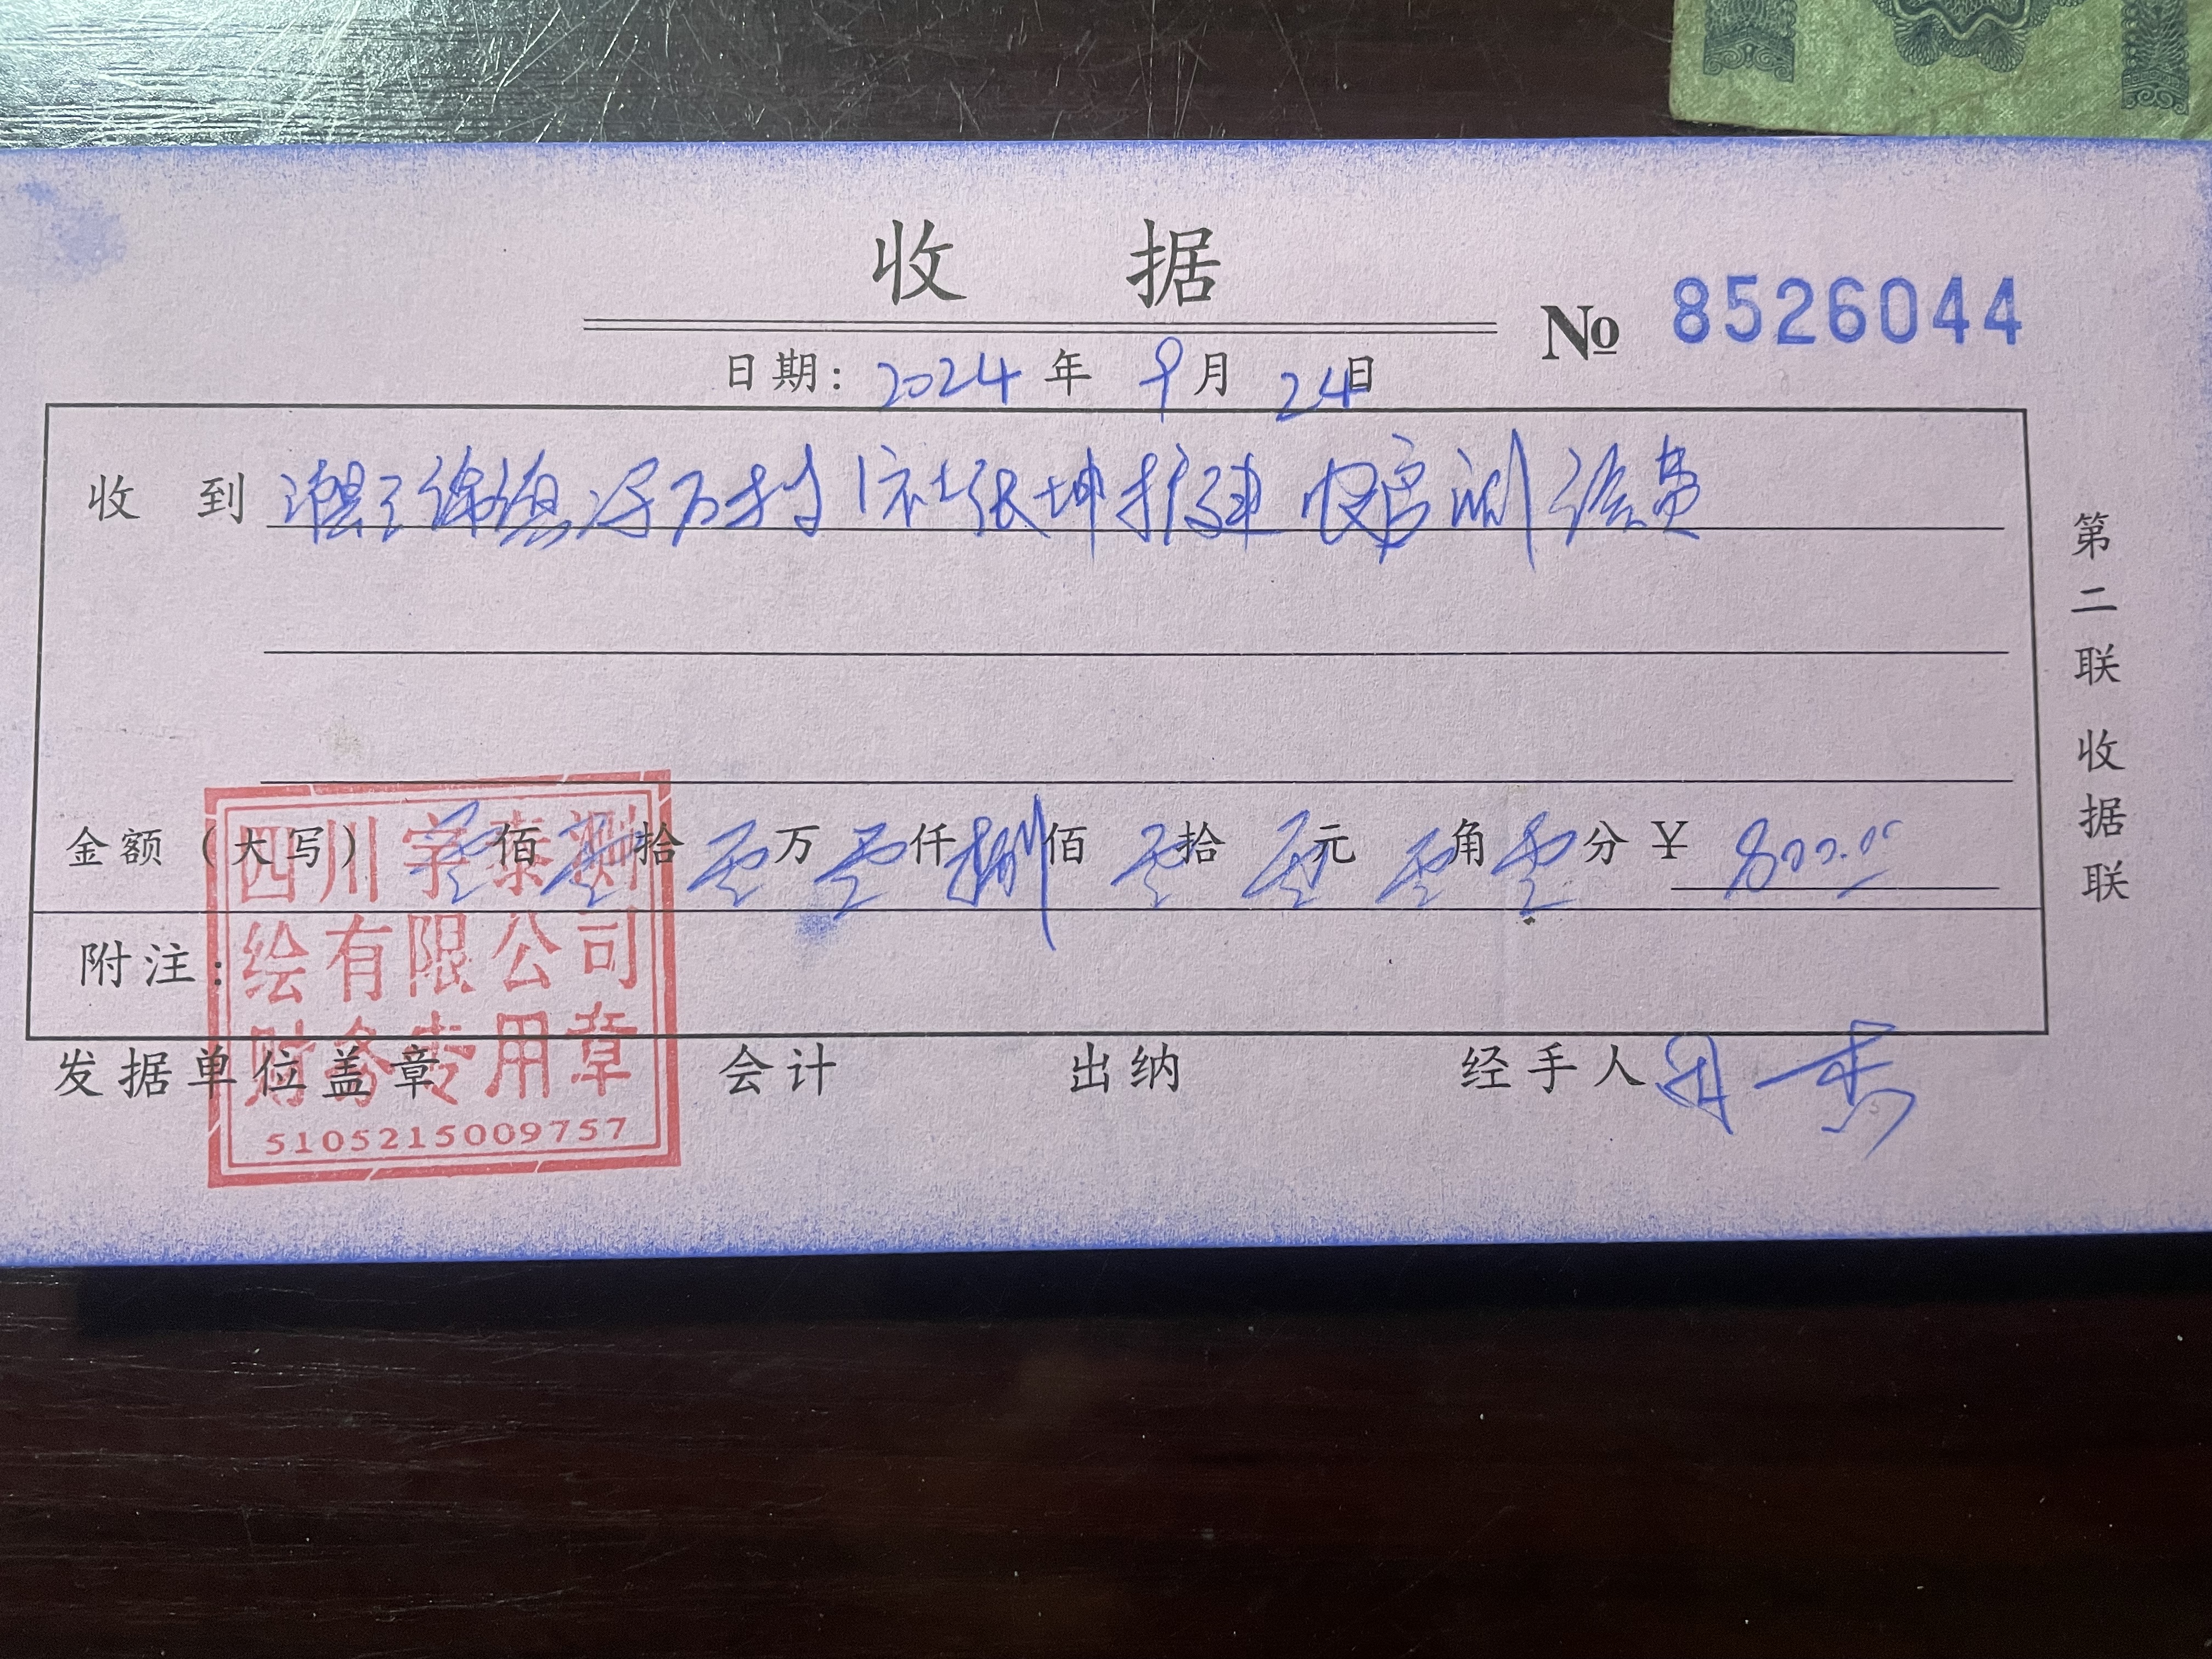 收 据
№ 8526044
日期: 2024 年 9 月 24 日
收 到 万村1社张坤扩建农房测绘费
金额(大写) 零佰零拾零万零仟捌佰零拾零元零角零分 ¥ 800.00
附注:
发据单位盖章 会计 出纳 经手人
第二联 收据联
四川宇泰测
绘有限公司
财务专用章
5105215009757